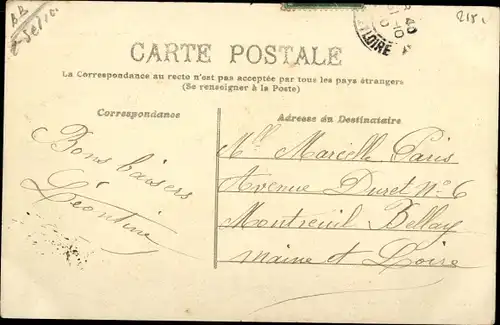 CARTE POSTALE
La Correspondance au recto n'est pas acceptée par tous les pays étrangers
(Se renseigner à la Poste)
Correspondance
Bons baisers
Léontine
Adresse du Destinataire
Mlle Marcelle Paris
Avenue Duret No 6
Montreuil Bellay
maine et Loire
LOIRE